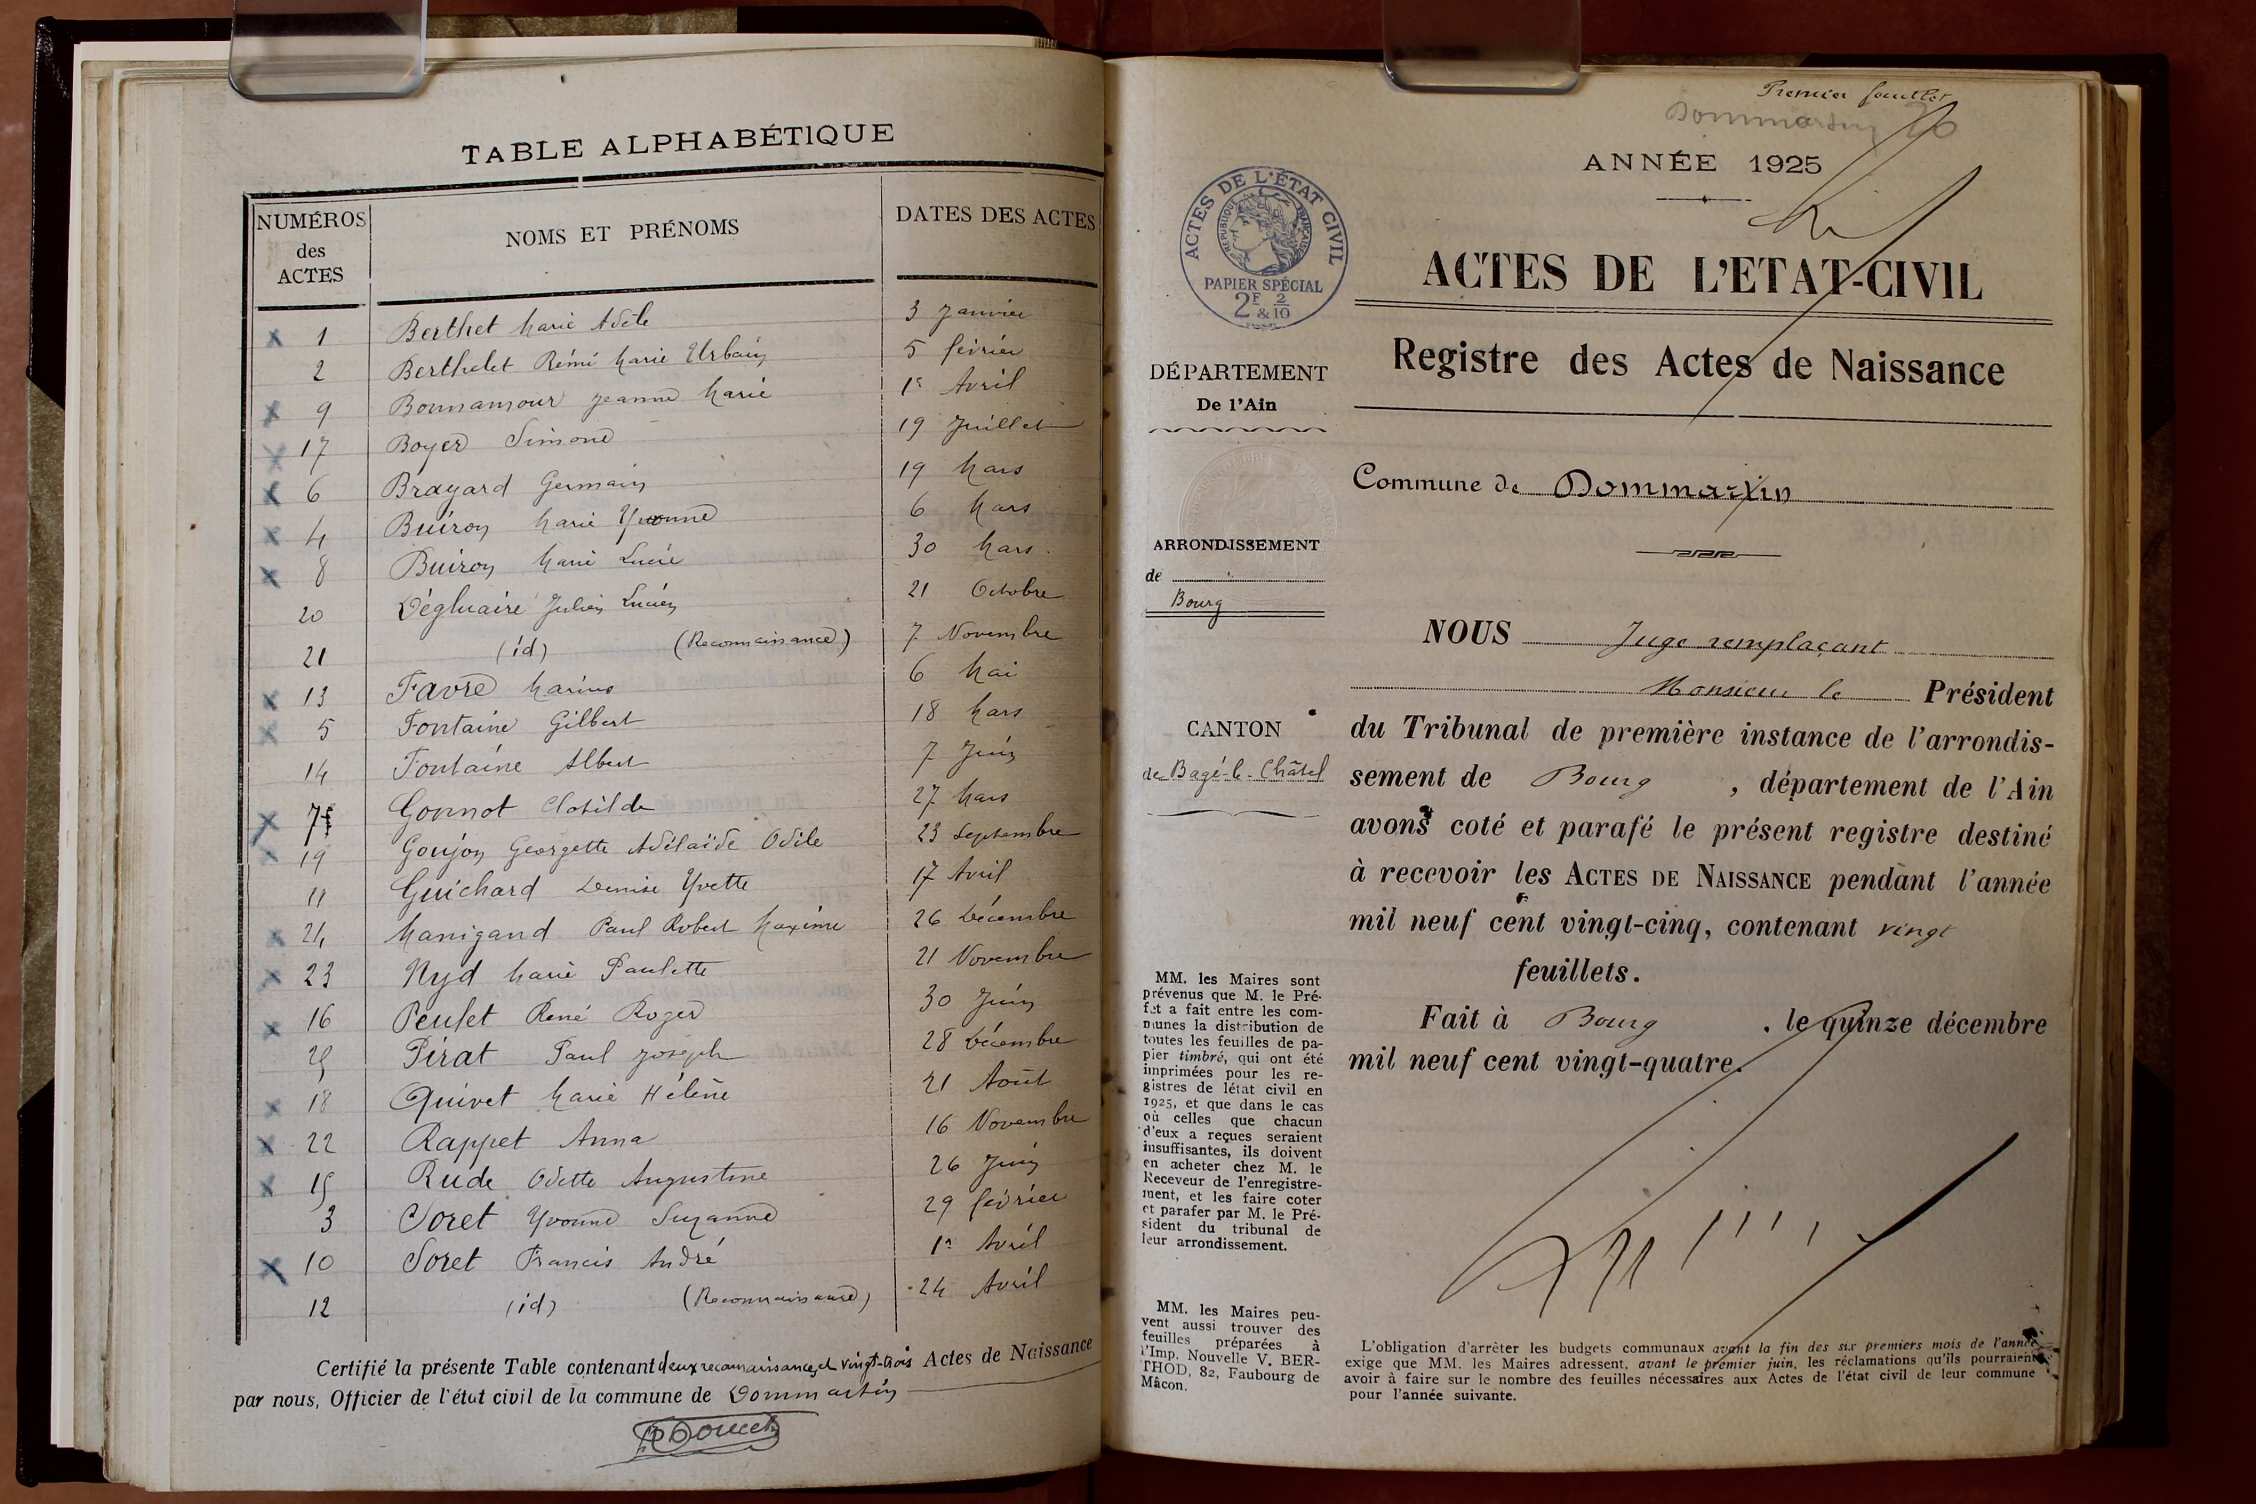 TABLE ALPHABÉTIQUE
NUMÉROS des ACTES NOMS ET PRÉNOMS DATES DES ACTES
1 Berthet Marie Adèle 3 Janvier
2 Berthelet Rémi Marie Urbain 5 février
9 Bonnamour Jeanne Marie 1er Avril
17 Boyer Simone 19 Juillet
6 Brayard Germain 19 Mars
4 Buiron Marie Yvonne 6 Mars
8 Buiron Marie Lucie 30 Mars
20 Dégluaire Julien Lucien 21 Octobre
21 (id) (Reconnaissance) 7 Novembre
13 Favre Marius 6 Mai
5 Fontaine Gilbert 18 Mars
14 Fontaine Albert 7 Juin
7 Gonnot Clotilde 27 Mars
19 Goujon Georgette Adélaïde Odile 23 Septembre
11 Guichard Denise Yvette 17 Avril
24 Manigand Paul Robert Maxime 26 Décembre
23 Nyd Marie Paulette 21 Novembre
16 Peulet René Roger 30 Juin
25 Pirat Paul Joseph 28 Décembre
18 Quivet Marie Hélène 21 Août
22 Rappet Anna 16 Novembre
15 Rude Odette Augustine 26 Juin
3 Soret Yvonne Suzanne 29 février
10 Soret Francis André 1er Avril
12 (id) (Reconnaissance) 24 Avril
Certifié la présente Table contenant deux reconnaissances et vingt-trois Actes de Naissance
par nous, Officier de l'état civil de la commune de Dommartin
Doucet
Premier feuillet
Dommartin 20
ANNÉE 1925
ACTES DE L'ÉTAT CIVIL
RÉPUBLIQUE FRANÇAISE
PAPIER SPÉCIAL
2F & 2/10
ACTES DE L'ETAT-CIVIL
Registre des Actes de Naissance
DÉPARTEMENT
De l'Ain
Commune de Dommartin
ARRONDISSEMENT
de
Bourg
CANTON
de Bagé-le-Châtel
NOUS Juge remplaçant
Monsieur le Président
du Tribunal de première instance de l'arrondis-
sement de Bourg, département de l'Ain
avons coté et parafé le présent registre destiné
à recevoir les ACTES DE NAISSANCE pendant l'année
mil neuf cent vingt-cinq, contenant vingt
feuillets.
Fait à Bourg, le quinze décembre
mil neuf cent vingt-quatre.
MM. les Maires sont
prévenus que M. le Pré-
fet a fait entre les com-
munes la distribution de
toutes les feuilles de pa-
pier timbré, qui ont été
imprimées pour les re-
gistres de létat civil en
1925, et que dans le cas
où celles que chacun
d'eux a reçues seraient
insuffisantes, ils doivent
en acheter chez M. le
Receveur de l'enregistre-
ment, et les faire coter
et parafer par M. le Pré-
sident du tribunal de
leur arrondissement.
MM. les Maires peu-
vent aussi trouver des
feuilles préparées à
l'Imp. Nouvelle V. BER-
THOD, 82, Faubourg de
Mâcon.
L'obligation d'arrêter les budgets communaux avant la fin des six premiers mois de l'année
exige que MM. les Maires adressent, avant le premier juin, les réclamations qu'ils pourraient
avoir à faire sur le nombre des feuilles nécessaires aux Actes de l'état civil de leur commune
pour l'année suivante.